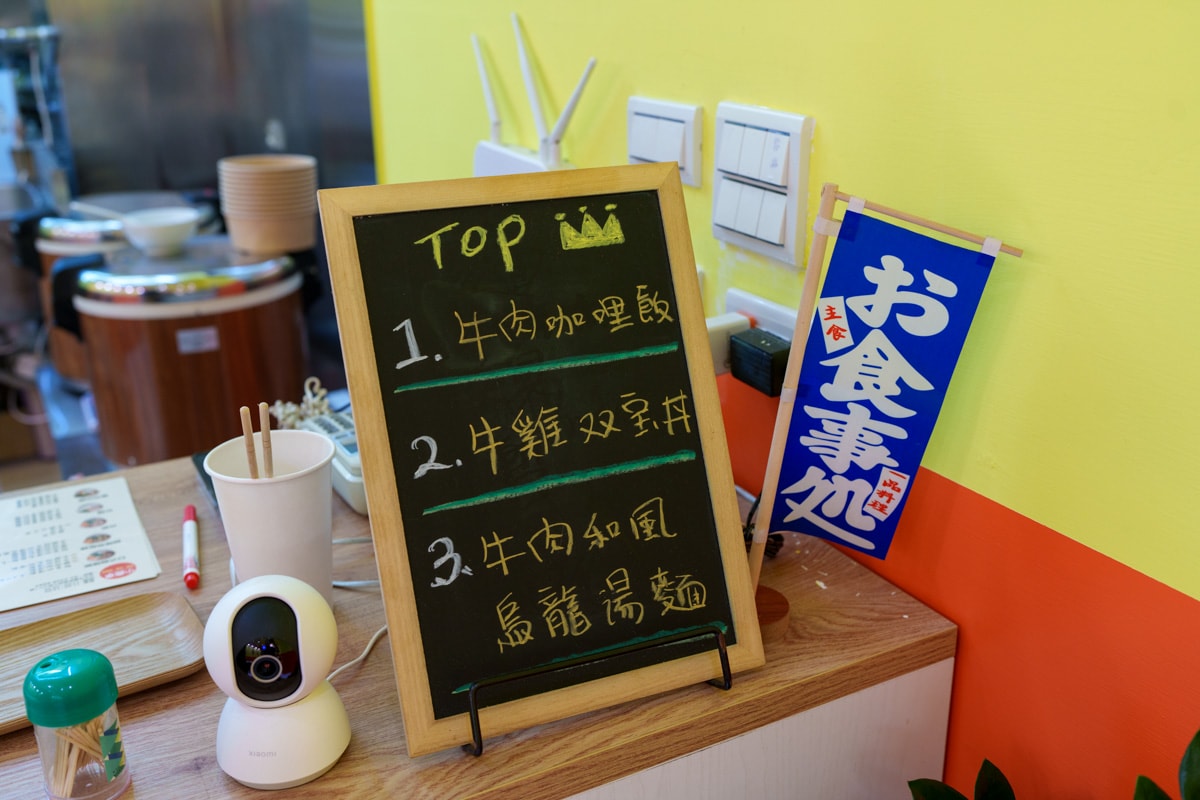 TOP
1. 牛肉咖哩飯
2. 牛雞双宝丼
3. 牛肉和風
烏龍湯麵
お食事処
主食
一品料理
XIAOMI